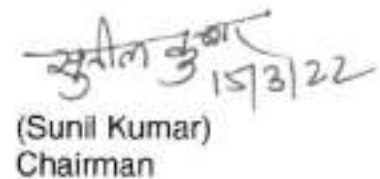 सुनील कुमार
15/3/22
(Sunil Kumar)
Chairman